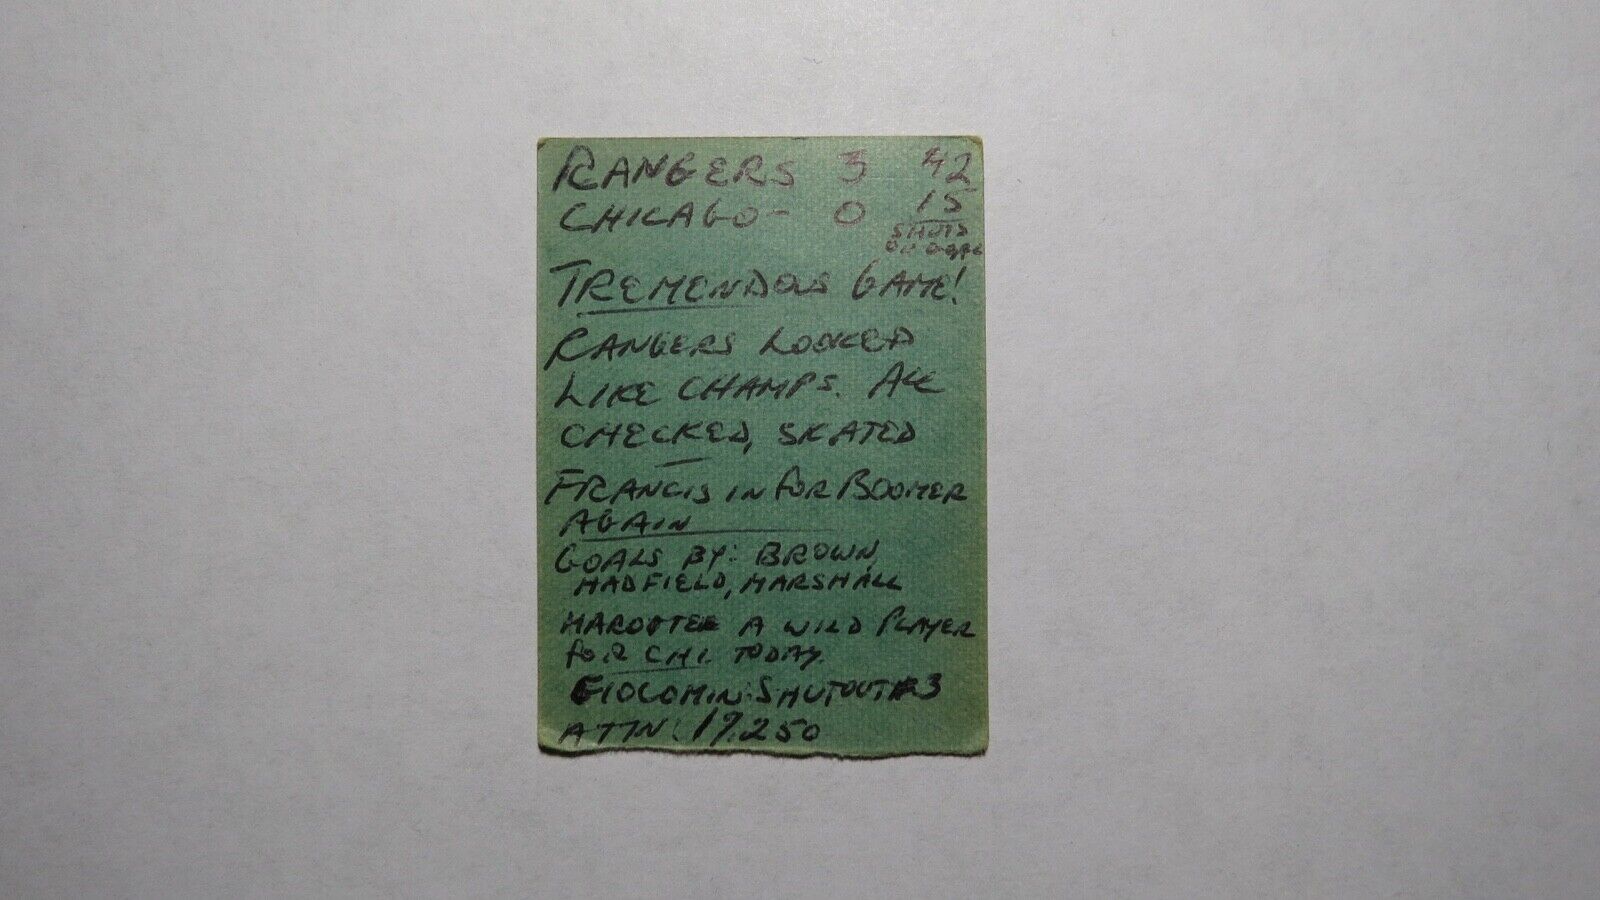 RANGERS 3 42
CHICAGO - 0 15
SHOTS
ON GOAL
TREMENDOUS GAME!
RANGERS LOOKED
LIKE CHAMPS. ALL
CHECKED, SKATED
FRANCIS IN FOR BOOMER
AGAIN
GOALS BY: BROWN,
HADFIELD, MARSHALL
A WILD PLAYER
FOR CHI. TODAY.
GIOCOMIN: SHUTOUT #3
ATTN: 17,250